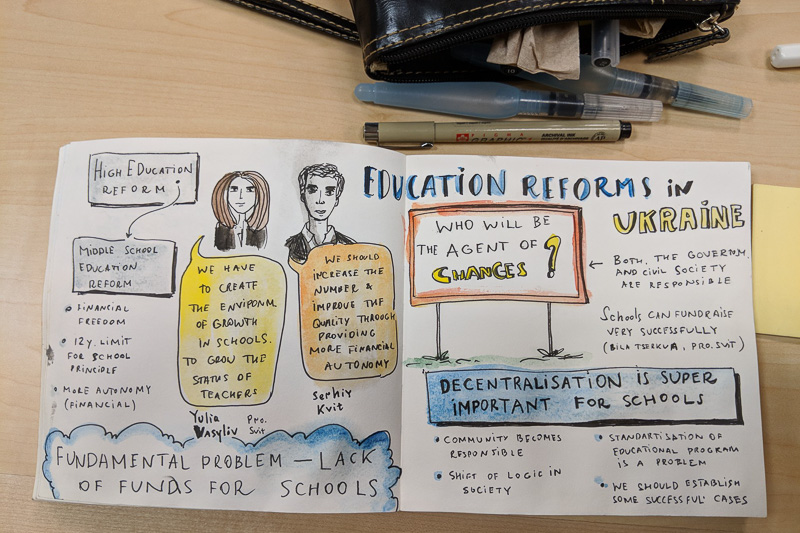 HIGH EDUCATION
REFORM
MIDDLE SCHOOL
EDUCATION
REFORM
FINANCIAL
FREEDOM
12 y. LIMIT
FOR SCHOOL
PRINCIPLE
MORE AUTONOMY
(FINANCIAL)
WE HAVE
TO CREATE
THE ENVIPONM.
OF GROWTH
IN SCHOOLS.
TO GROW THE
STATUS OF
TEACHERS
Yulia
Vasyliv
Pro.
Svit
WE SHOULD
INCREASE THE
NUMBER &
IMPROVE THE
QUALITY THROUGH
PROVIDING
MORE FINANCIAL
AUTONOMY
Serhiy
Kvit
FUNDAMENTAL PROBLEM — LACK
OF FUNDS FOR SCHOOLS
EDUCATION REFORMS IN
UKRAINE
WHO WILL BE
THE AGENT OF
CHANGES ?
BOTH, THE GOVERNM.
AND CIVIL SOCIETY
ARE RESPONSIBLE
SCHOOLS CAN FUNDRAISE
VERY SUCCESSFULLY
(BILA TSERKVA, PRO.SVIT)
DECENTRALISATION IS SUPER
IMPORTANT FOR SCHOOLS
COMMUNITY BECOMES
RESPONSIBLE
SHIFT OF LOGIC IN
SOCIETY
STANDARTISATION OF
EDUCATIONAL PROGRAM
IS A PROBLEM
WE SHOULD ESTABLISH
SOME SUCCESSFUL CASES
ARCHIVAL INK